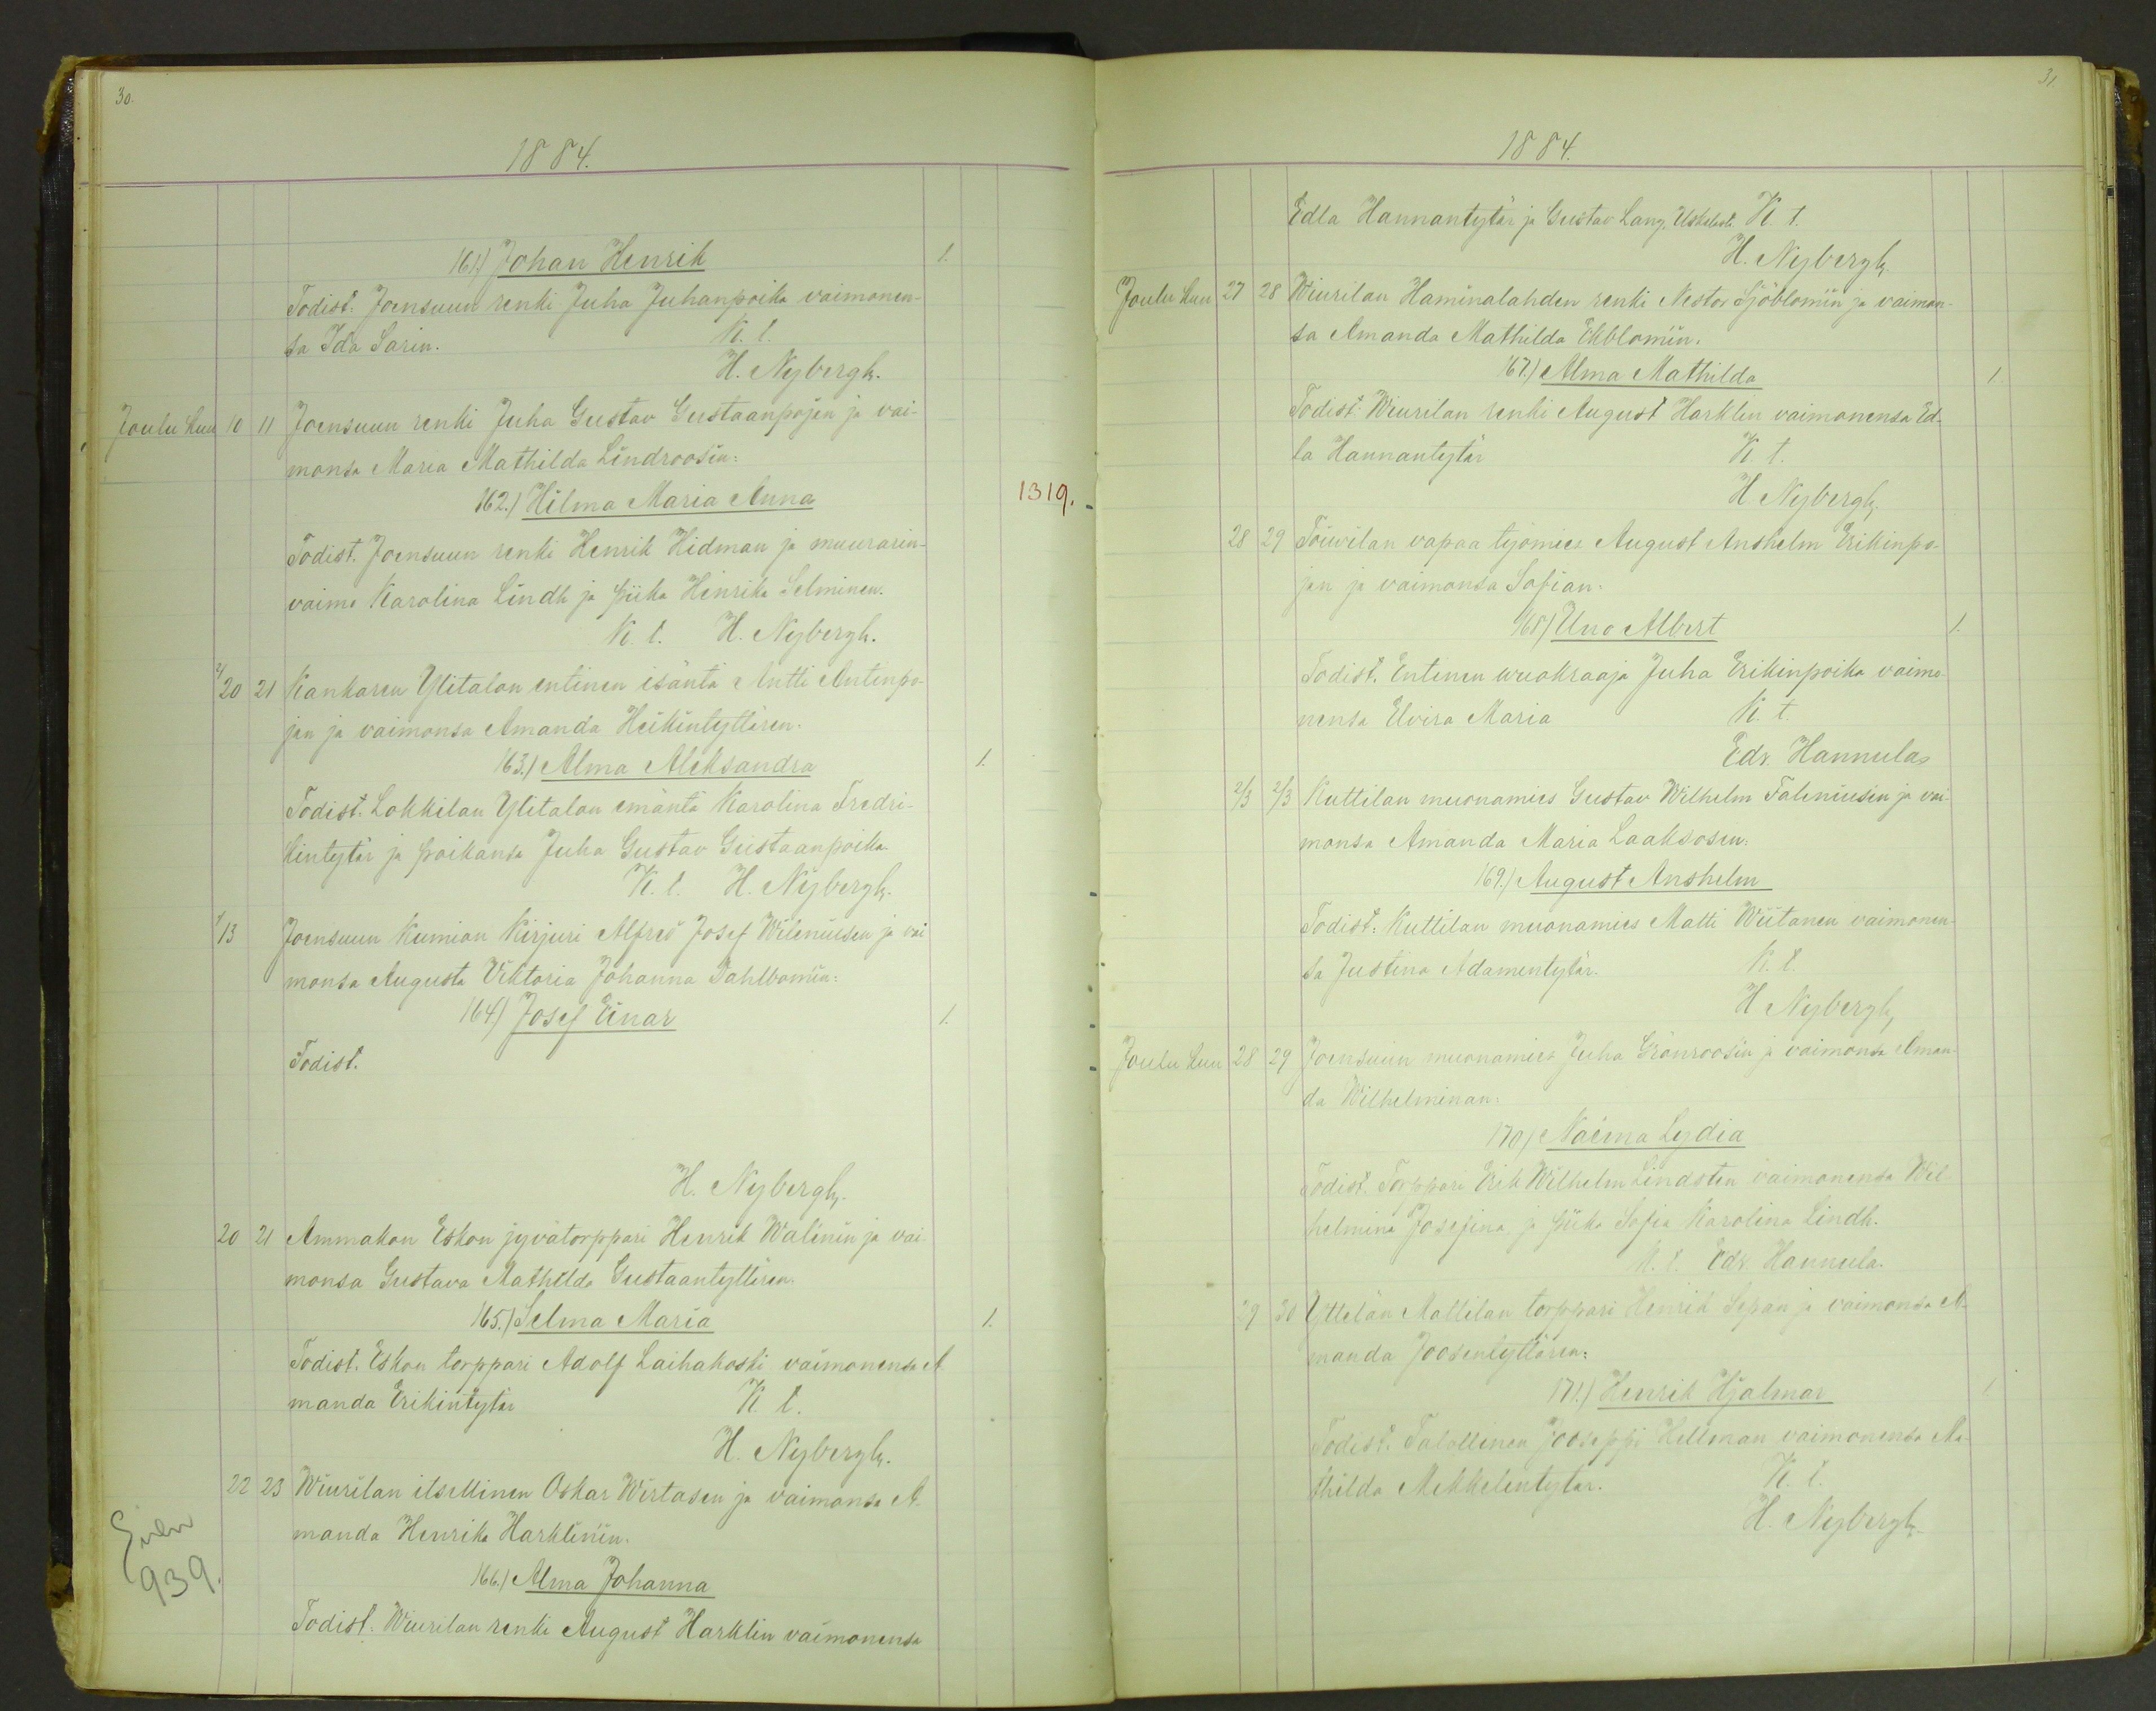 30.
1884.
161.) Johan Henrik 1.
Todist. Joensuun renki Juha Juhanpoika vaimonen-
sa Ida Sarin. K. t.
H. Nybergh.
Joulu kuu 10 11 Joensuun renki Juha Gustav Gustaanpojan ja vai-
monsa Maria Mathilda Lindroosin:
162.) Hilma Maria Anna 1319.
Todist. Joensuun renki Henrik Hidman ja muurarin-
vaimo Karolina Lindh ja piika Henrika Selminen.
K. t. H. Nybergh.
20 21 Kankaren Ylitalon entinen isäntä Antti Antinpo-
jan ja vaimonsa Amanda Heikintyttären.
163.) Alma Aleksandra 1.
Todist. Lokkilan Ylitalon emäntä Karolina Fredri-
kintytär ja poikansa Juha Gustav Gustaanpoika
K. t. H. Nybergh.
13 Joensuun Kumion Kirjuri Alfred Josef Wileniusen ja vai
monsa Augusta Viktoria Johanna Dahlbomin:
164) Josef Einar 1.
Todist.
H. Nybergh.
20 21 Ammakon Eskon jyvätorppari Henrik Walinin ja vai-
monsa Gustava Mathilda Gustaantyttären.
165.) Selma Maria 1.
Todist. Eskon torppari Adolf Laihakoski vaimonensa A
manda Erikintytär K t.
H. Nybergh.
22 23 Wiurilan itsellinen Oskar Wirtasen ja vaimonsa A-
manda Henrika Harklinin.
939.
166.) Alma Johanna
Todist. Wiurilan renki August Harklin vaimonensa
31
1884.
Edla Hannantytär ja Gustav Lang, K. t.
H. Nybergh.
Joulu kuu 27 28 Wiurilan Haminalahden renki Nestor Sjöblomin ja vaimon-
sa Amanda Mathilda Ekblomin.
167.) Alma Mathilda 1.
Todist. Wiurilan renki August Harklin vaimonensa Ed-
la Hannantytär K t.
H. Nybergh.
28 29 Toiwilan vapaa työmies August Anshelm Erikinpo-
jan ja vaimonsa Sofian.
168) Uno Albert 1.
Todist. Entinen wuokraaja Juha Erikinpoika vaimo-
nensa Elvira Maria K. t.
Edv. Hannula
2/3 2/3 Kuttilan muonamies Gustav Wilhelm Faleniusin ja vai-
monsa Amanda Maria Laaksosin.
169.) August Anshelm
Todist. Kuttilan muonamies Matti Wiitanen vaimonen-
sa Justina Adamentytär. K. t.
H Nybergh,
Joulu kuu 28 29 Joensuun muonamies Juha Grönroosin ja vaimonsa Aman-
da Wilhelminan:
170) Naëma Lydia
Todist. Torppari Erik Wilhelm Lindsten vaimonensa Wil-
helmina Josefina ja piika Sofia Karolina Lindh.
K. t. Edv. Hannula.
29 30 Yttelän Mattilan torppari Henrik Sepän ja vaimonsa A-
manda Joosentyttären:
171.) Henrik Hjalmar 1
Todist. Talollinen Jooseppi Hellman vaimonensa Ma-
thilda Mikkelintytär. K. t.
H. Nybergh.